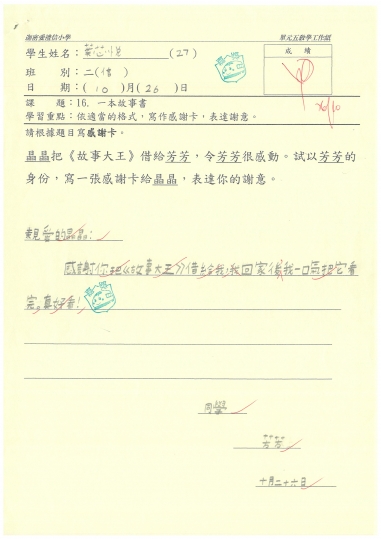 單元五教學工作紙
學生姓名：葉芯 (27)
成績
班別：二(信)
日期：(10)月(26)日
26/10
課題：16. 一本故事書
學習重點：依適當的格式，寫作感謝卡，表達謝意。
請根據題目寫感謝卡。
晶晶把《故事大王》借給芳芳，令芳芳很感動。試以芳芳的
身份，寫一張感謝卡給晶晶，表達你的謝意。
親愛的晶晶：
感謝你把《故事大王》借給我，我回家後我一口氣把它看
完。真好看！
同學
芳芳
十月二十六日